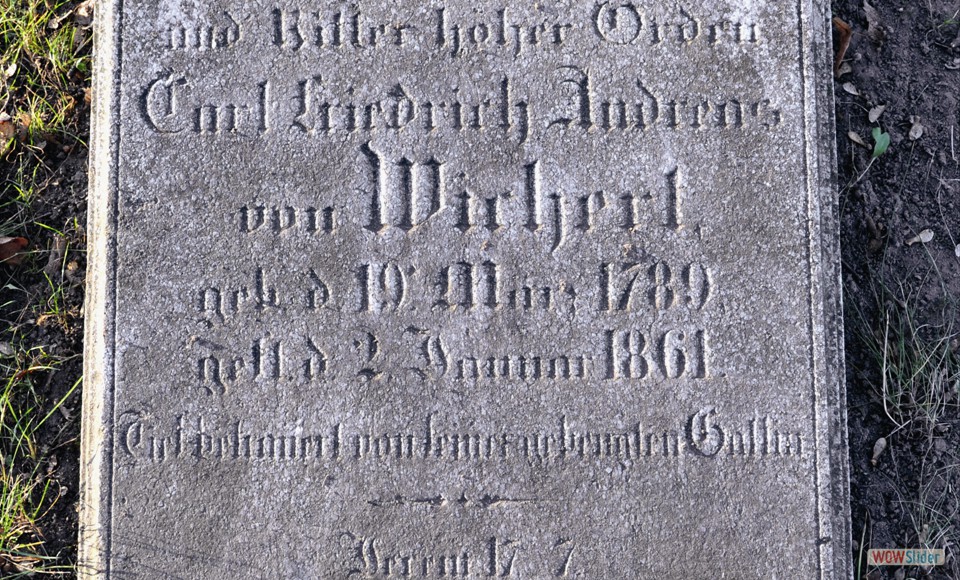 und Ritter hoher Orden
Carl Friedrich Andreas
von Wichert,
geb. d. 19. März 1789.
gest. d. 2. Januar 1861.
Tief betrauert von seiner gebeugten Gattin
Jerem. 17. 7.
WOWSlider